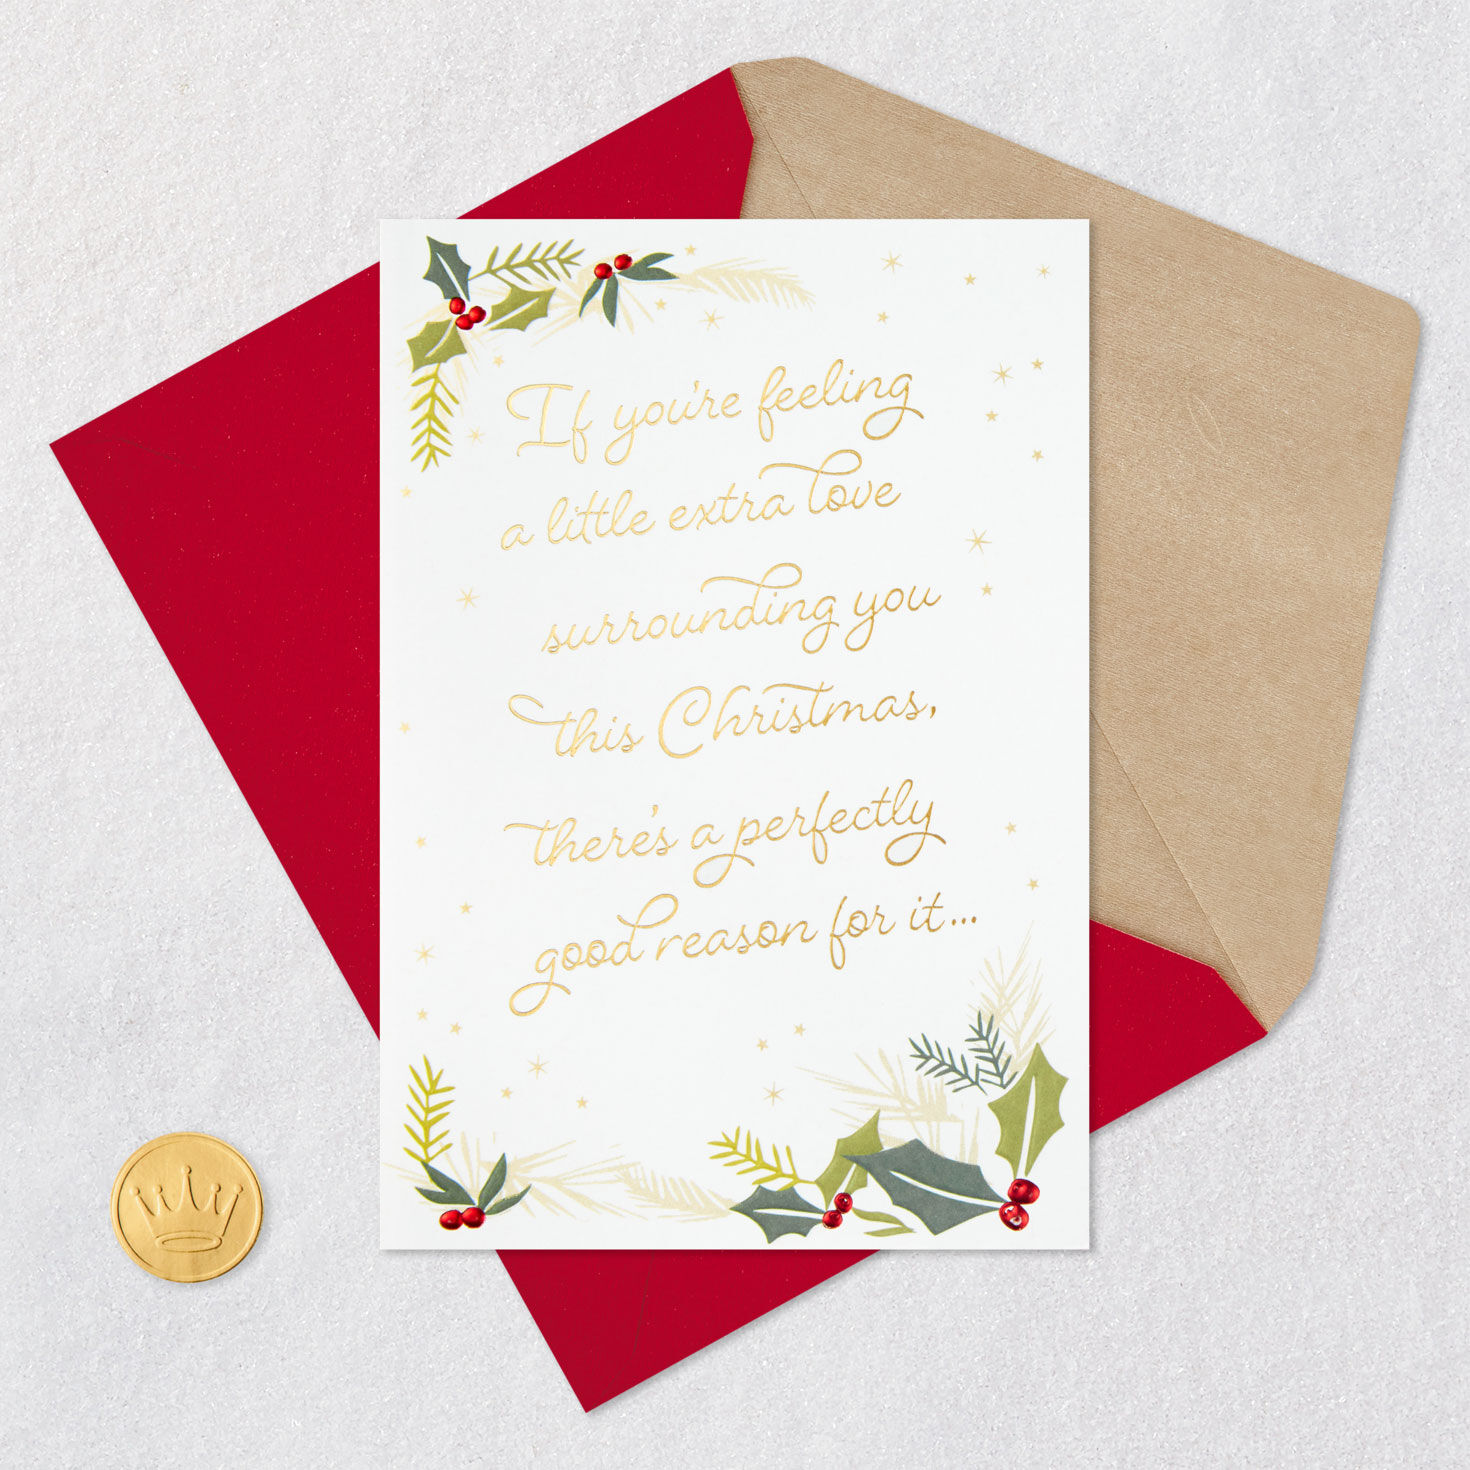 If you're feeling
a little extra love
surrounding you
this Christmas,
there's a perfectly
good reason for it...